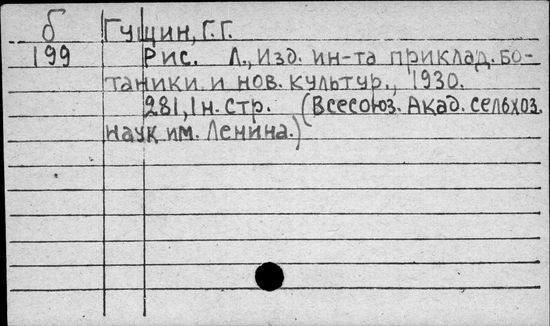 б Гущин, Г.Г.
199 Рис. Л., Изд. ин-та приклад. бо-
таники и нов. культур., 1930.
281, 1 н. стр. (Всесоюз. Акад. сельхоз.
наук им. Ленина.)